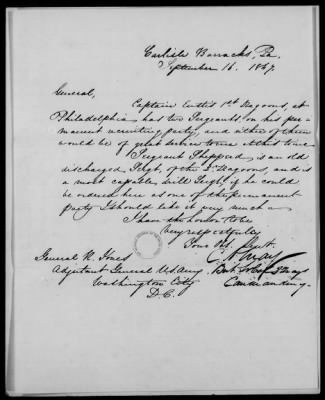 Carlisle Barracks, Pa.
September 16. 1847.
General,
Captain 1st Dragoons, at
Philadelphia has two Sergeants, on his per-
manent recruiting party, and either of them
would be of great service to me at this time
Sergeant Sheppard, is an old
discharged Sergt. of the 2d Dragoons, and is
a most capable drill Sergt, if he could
be ordered here as one of the permanent
party I should like it very much
I have the honor to be
Very respectfully
Your Obt. Servt.
C A May
General R. Jones Bvt. Lt Col 2 Drags
Adjutant General U.S. Army Commanding.
Washington City
D.C.